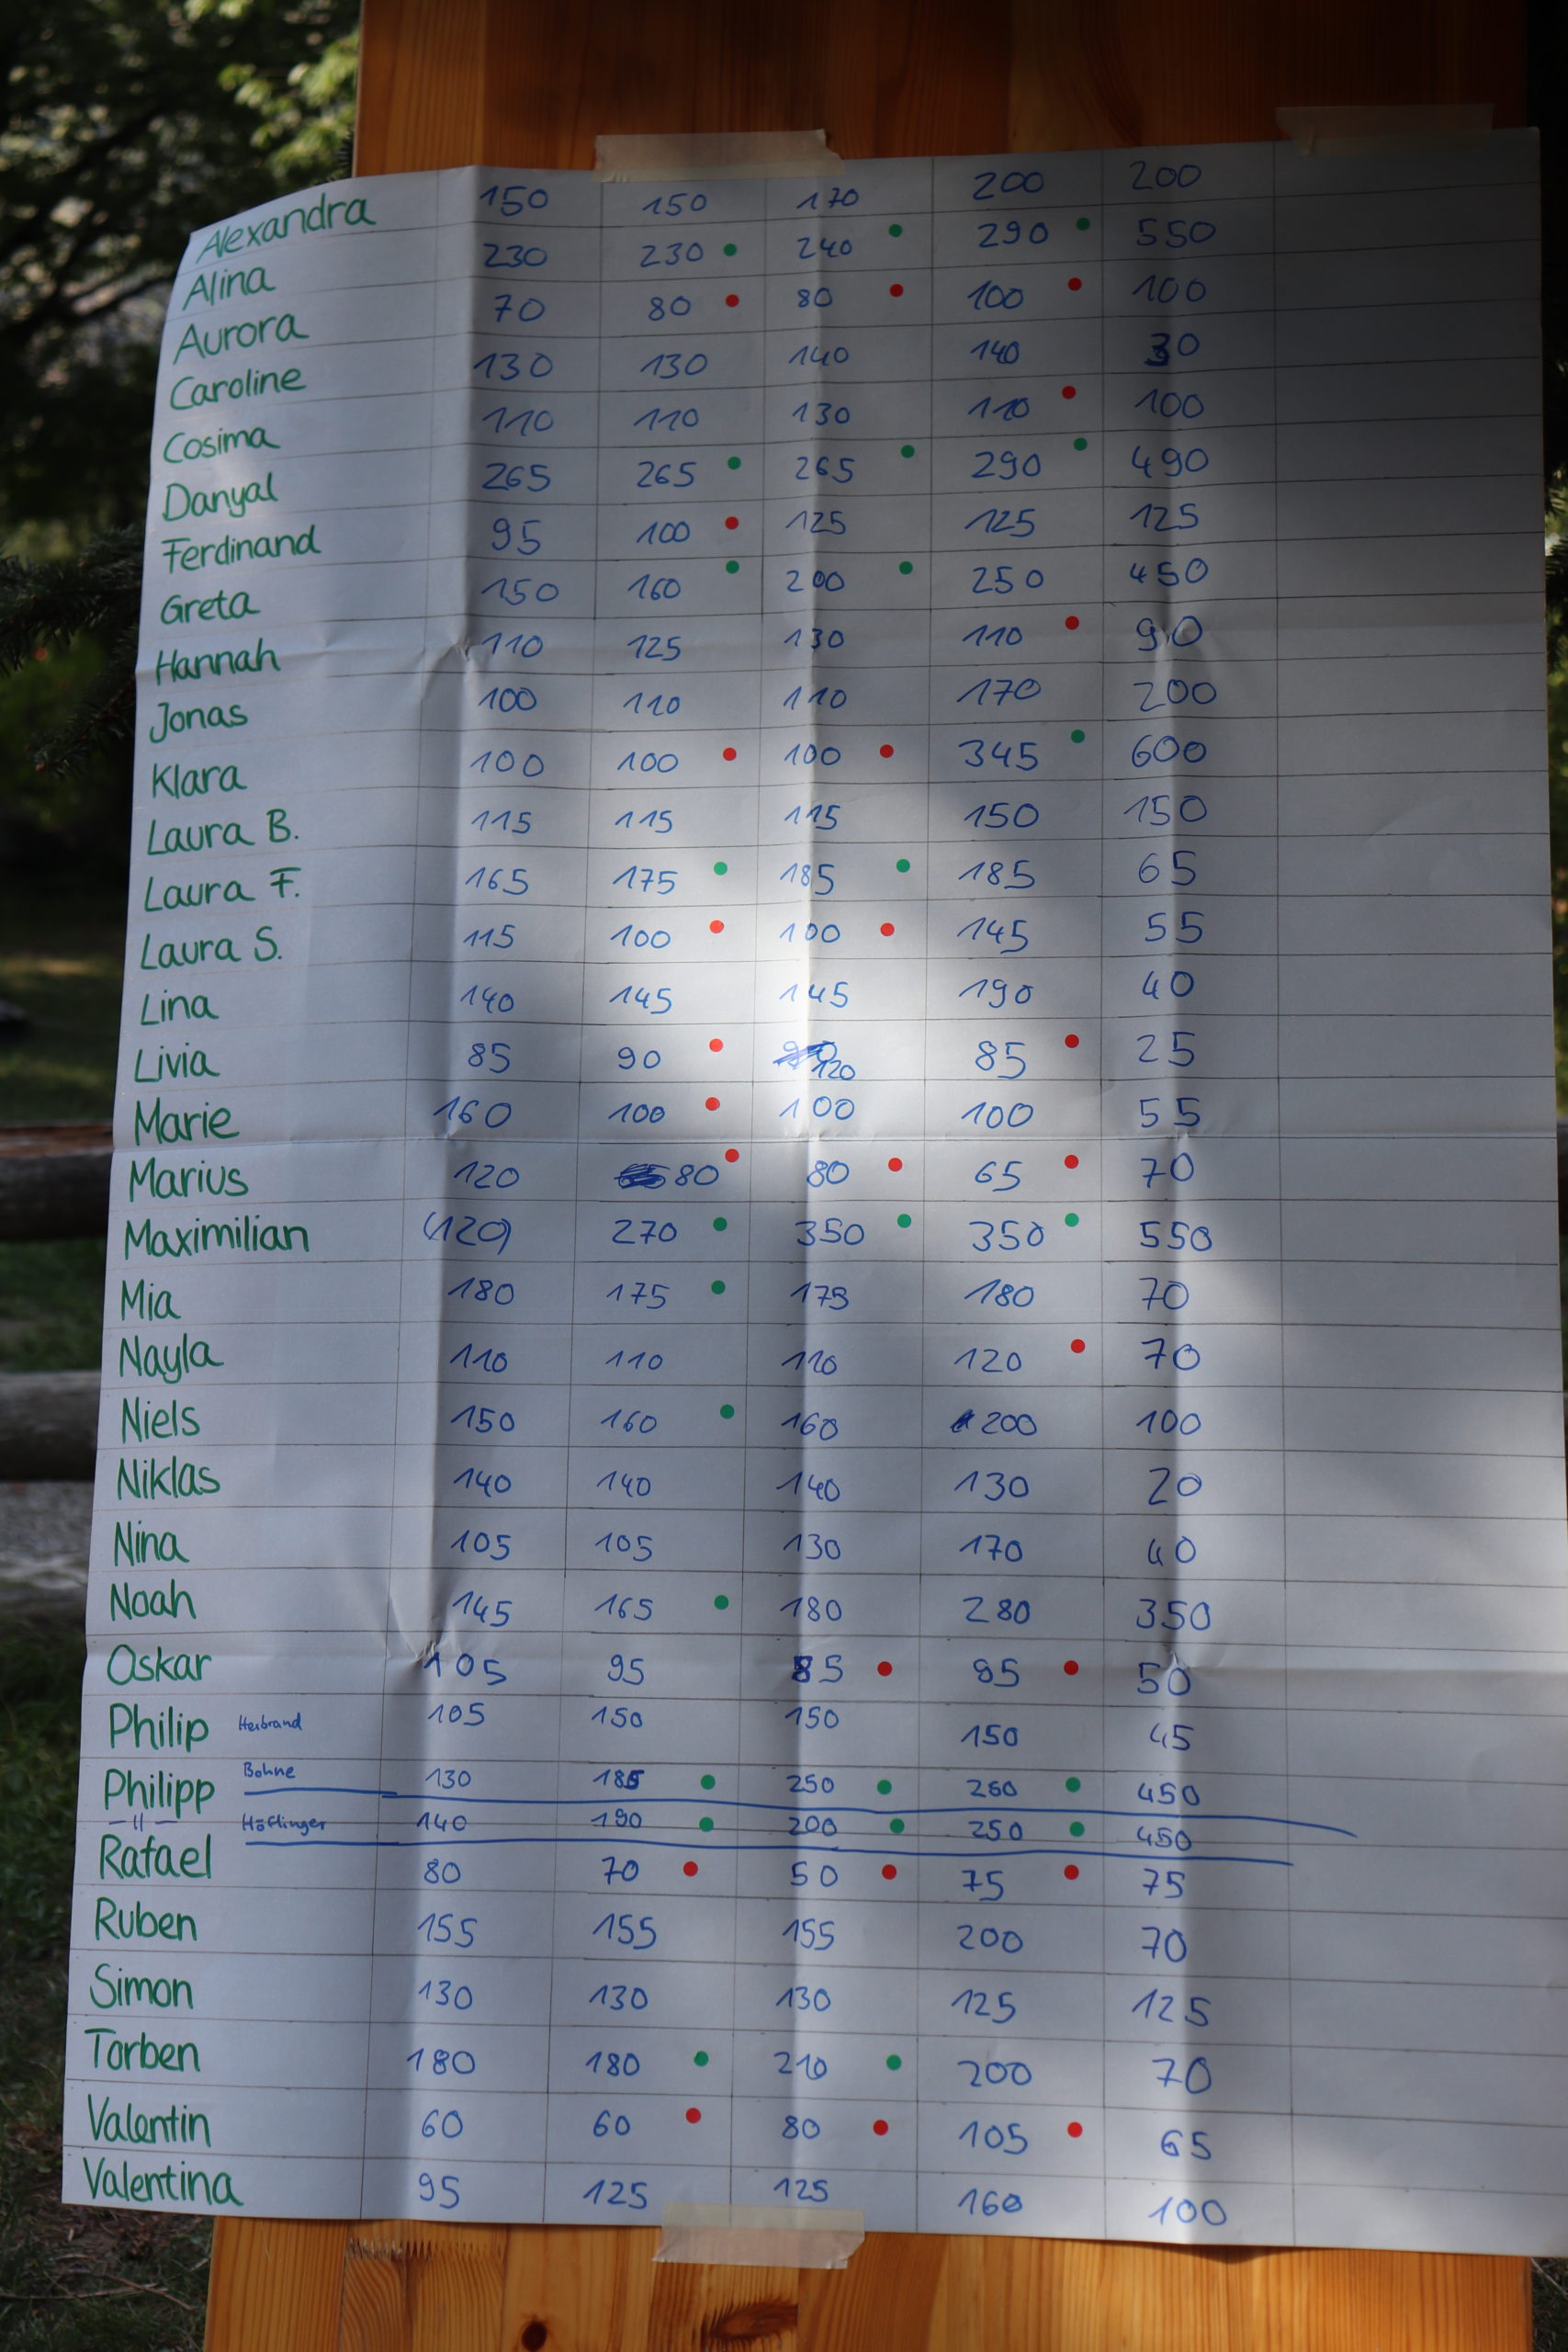 Alexandra 150 150 170 200 200
Alina 230 230 240 290 550
Aurora 70 80 80 100 100
Caroline 130 130 140 140 30
Cosima 110 110 130 110 100
Danyal 265 265 265 290 490
Ferdinand 95 100 125 125 125
Greta 150 160 200 250 450
Hannah 110 125 130 110 90
Jonas 100 110 110 170 200
Klara 100 100 100 345 600
Laura B. 115 115 115 150 150
Laura F. 165 175 185 185 65
Laura S. 115 100 100 145 55
Lina 140 145 145 190 40
Livia 85 90 120 85 25
Marie 160 100 100 100 55
Marius 120 80 80 65 70
Maximilian (120) 270 350 350 550
Mia 180 175 175 180 70
Nayla 110 110 110 120 70
Niels 150 160 160 200 100
Niklas 140 140 140 130 20
Nina 105 105 130 170 40
Noah 145 165 180 280 350
Oskar 105 95 85 85 50
Philip Herbrand 105 150 150 150 45
Philipp Bohne 130 185 250 260 450
–"– Höflinger 140 190 200 250 450
Rafael 80 70 50 75 75
Ruben 155 155 155 200 70
Simon 130 130 130 125 125
Torben 180 180 210 200 70
Valentin 60 60 80 105 65
Valentina 95 125 125 160 100